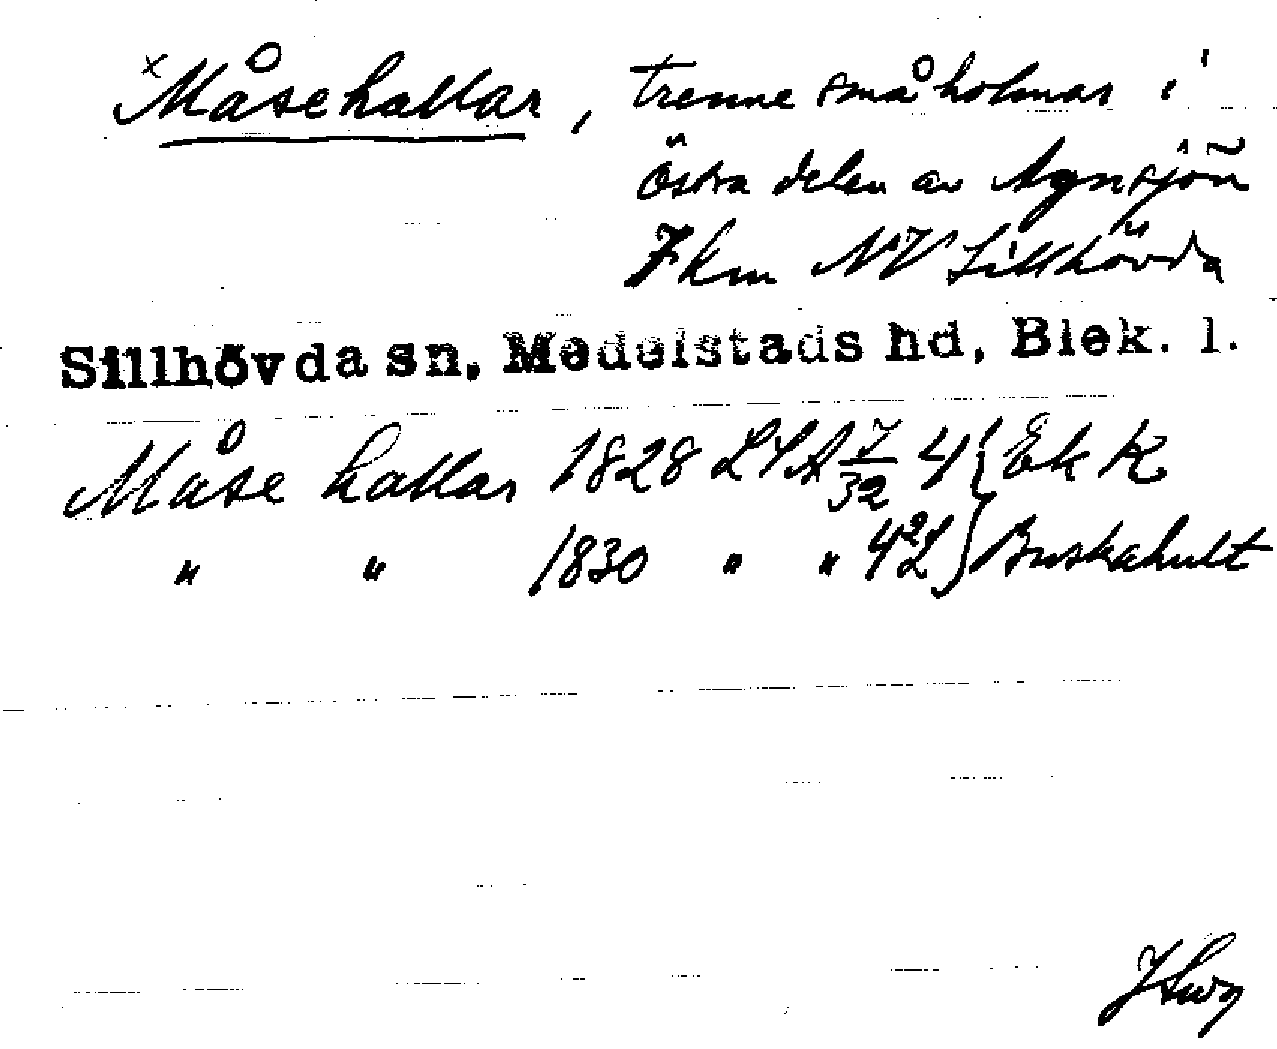 x Måsehallar, trenne småholmar i
östra delen av Agnsjön
7 km NV Sillhövda
Sillhövda sn, Medelstads hd, Blek. l.
Måse hallar 1828 LSA 7/32 4 } Ek K
" " 1830 " " 42 } Buskahult